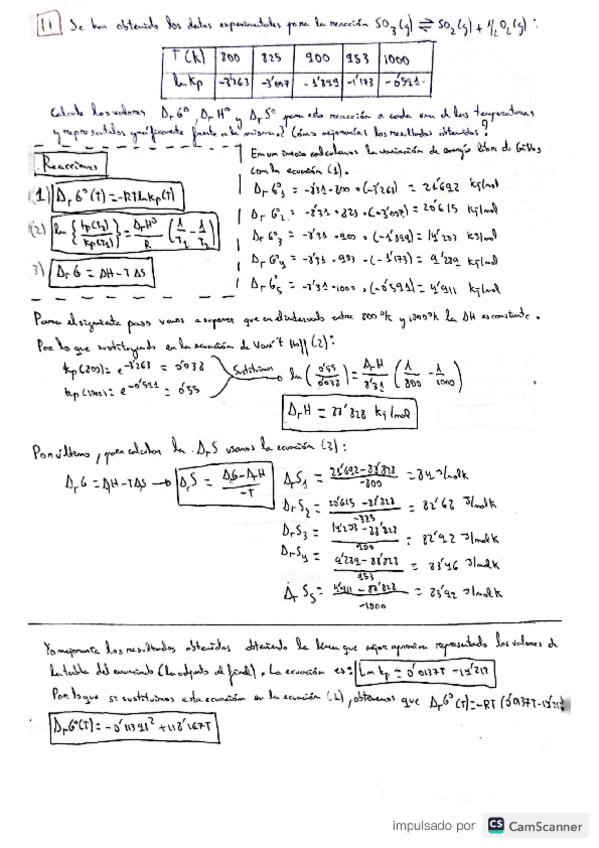 11 Se han obtenido los datos experimentales para la reacción SO3(g) ⇌ SO2(g) + 1/2 O2(g):
T(K) 800 825 900 953 1000
ln Kp -3'263 -3'007 -1'899 -1'173 -0'591
Calcule los valores ΔrG°, ΔrH° y ΔrS° para esta reacción a cada una de las temperaturas
y represéntelos gráficamente frente a la misma. ¿Cómo mejorarías los resultados obtenidos?
Reacciones
1) ΔrG°(T) = -RTLnKp(T)
(2) ln {Kp(T2)/Kp(T1)} = ΔrH°/R (1/T1 - 1/T2)
3) ΔrG = ΔH - TΔS
En un inicio calculamos la variación de energía libre de Gibbs
con la ecuación (1).
ΔrG°1 = -8'31·800·(-3'263) = 21'692 kJ/mol
ΔrG°2 = -8'31·825·(-3'007) = 20'615 kJ/mol
ΔrG°3 = -8'31·900·(-1'899) = 14'203 kJ/mol
ΔrG°4 = -8'31·953·(-1'173) = 9'289 kJ/mol
ΔrG°5 = -8'31·1000·(-0'591) = 4'911 kJ/mol
Para el siguiente paso vamos a suponer que en el intervalo entre 800°K y 1000°K la ΔH es constante.
Por lo que sustituyendo en la ecuación de Van't Hoff (2):
Kp(800) = e^-3'263 = 0'038
Kp(1000) = e^-0'591 = 0'55
Sustituimos ln (0'55/0'038) = ΔrH/8'31 (1/800 - 1/1000)
ΔrH = 88'828 kJ/mol
Por último, para calcular la ΔrS usamos la ecuación (3):
ΔrG = ΔH - TΔS → ΔrS = ΔG-ΔrH/-T
ΔrS1 = 21'692-88'828/-800 = 84 J/molK
ΔrS2 = 20'615-88'828/-825 = 82'68 J/molK
ΔrS3 = 14'203-88'828/900 = 82'92 J/molK
ΔrS4 = 9'289-88'828/953 = 83'46 J/molK
ΔrS5 = 4'911-88'828/-1000 = 83'92 J/molK
Yo mejoraría los resultados obtenidos obteniendo la línea que mejor aproxima representado los valores de
la tabla del enunciado (lo adjunto al final). La ecuación es: Ln Kp = 0'0137T - 14'217
Por lo que si sustituimos esta ecuación en la ecuación (1), obtenemos que ΔrG°(T) = -RT (0'0137T-14'21
ΔrG°(T) = -0'1139T² + 118'167T
impulsado por CS CamScanner